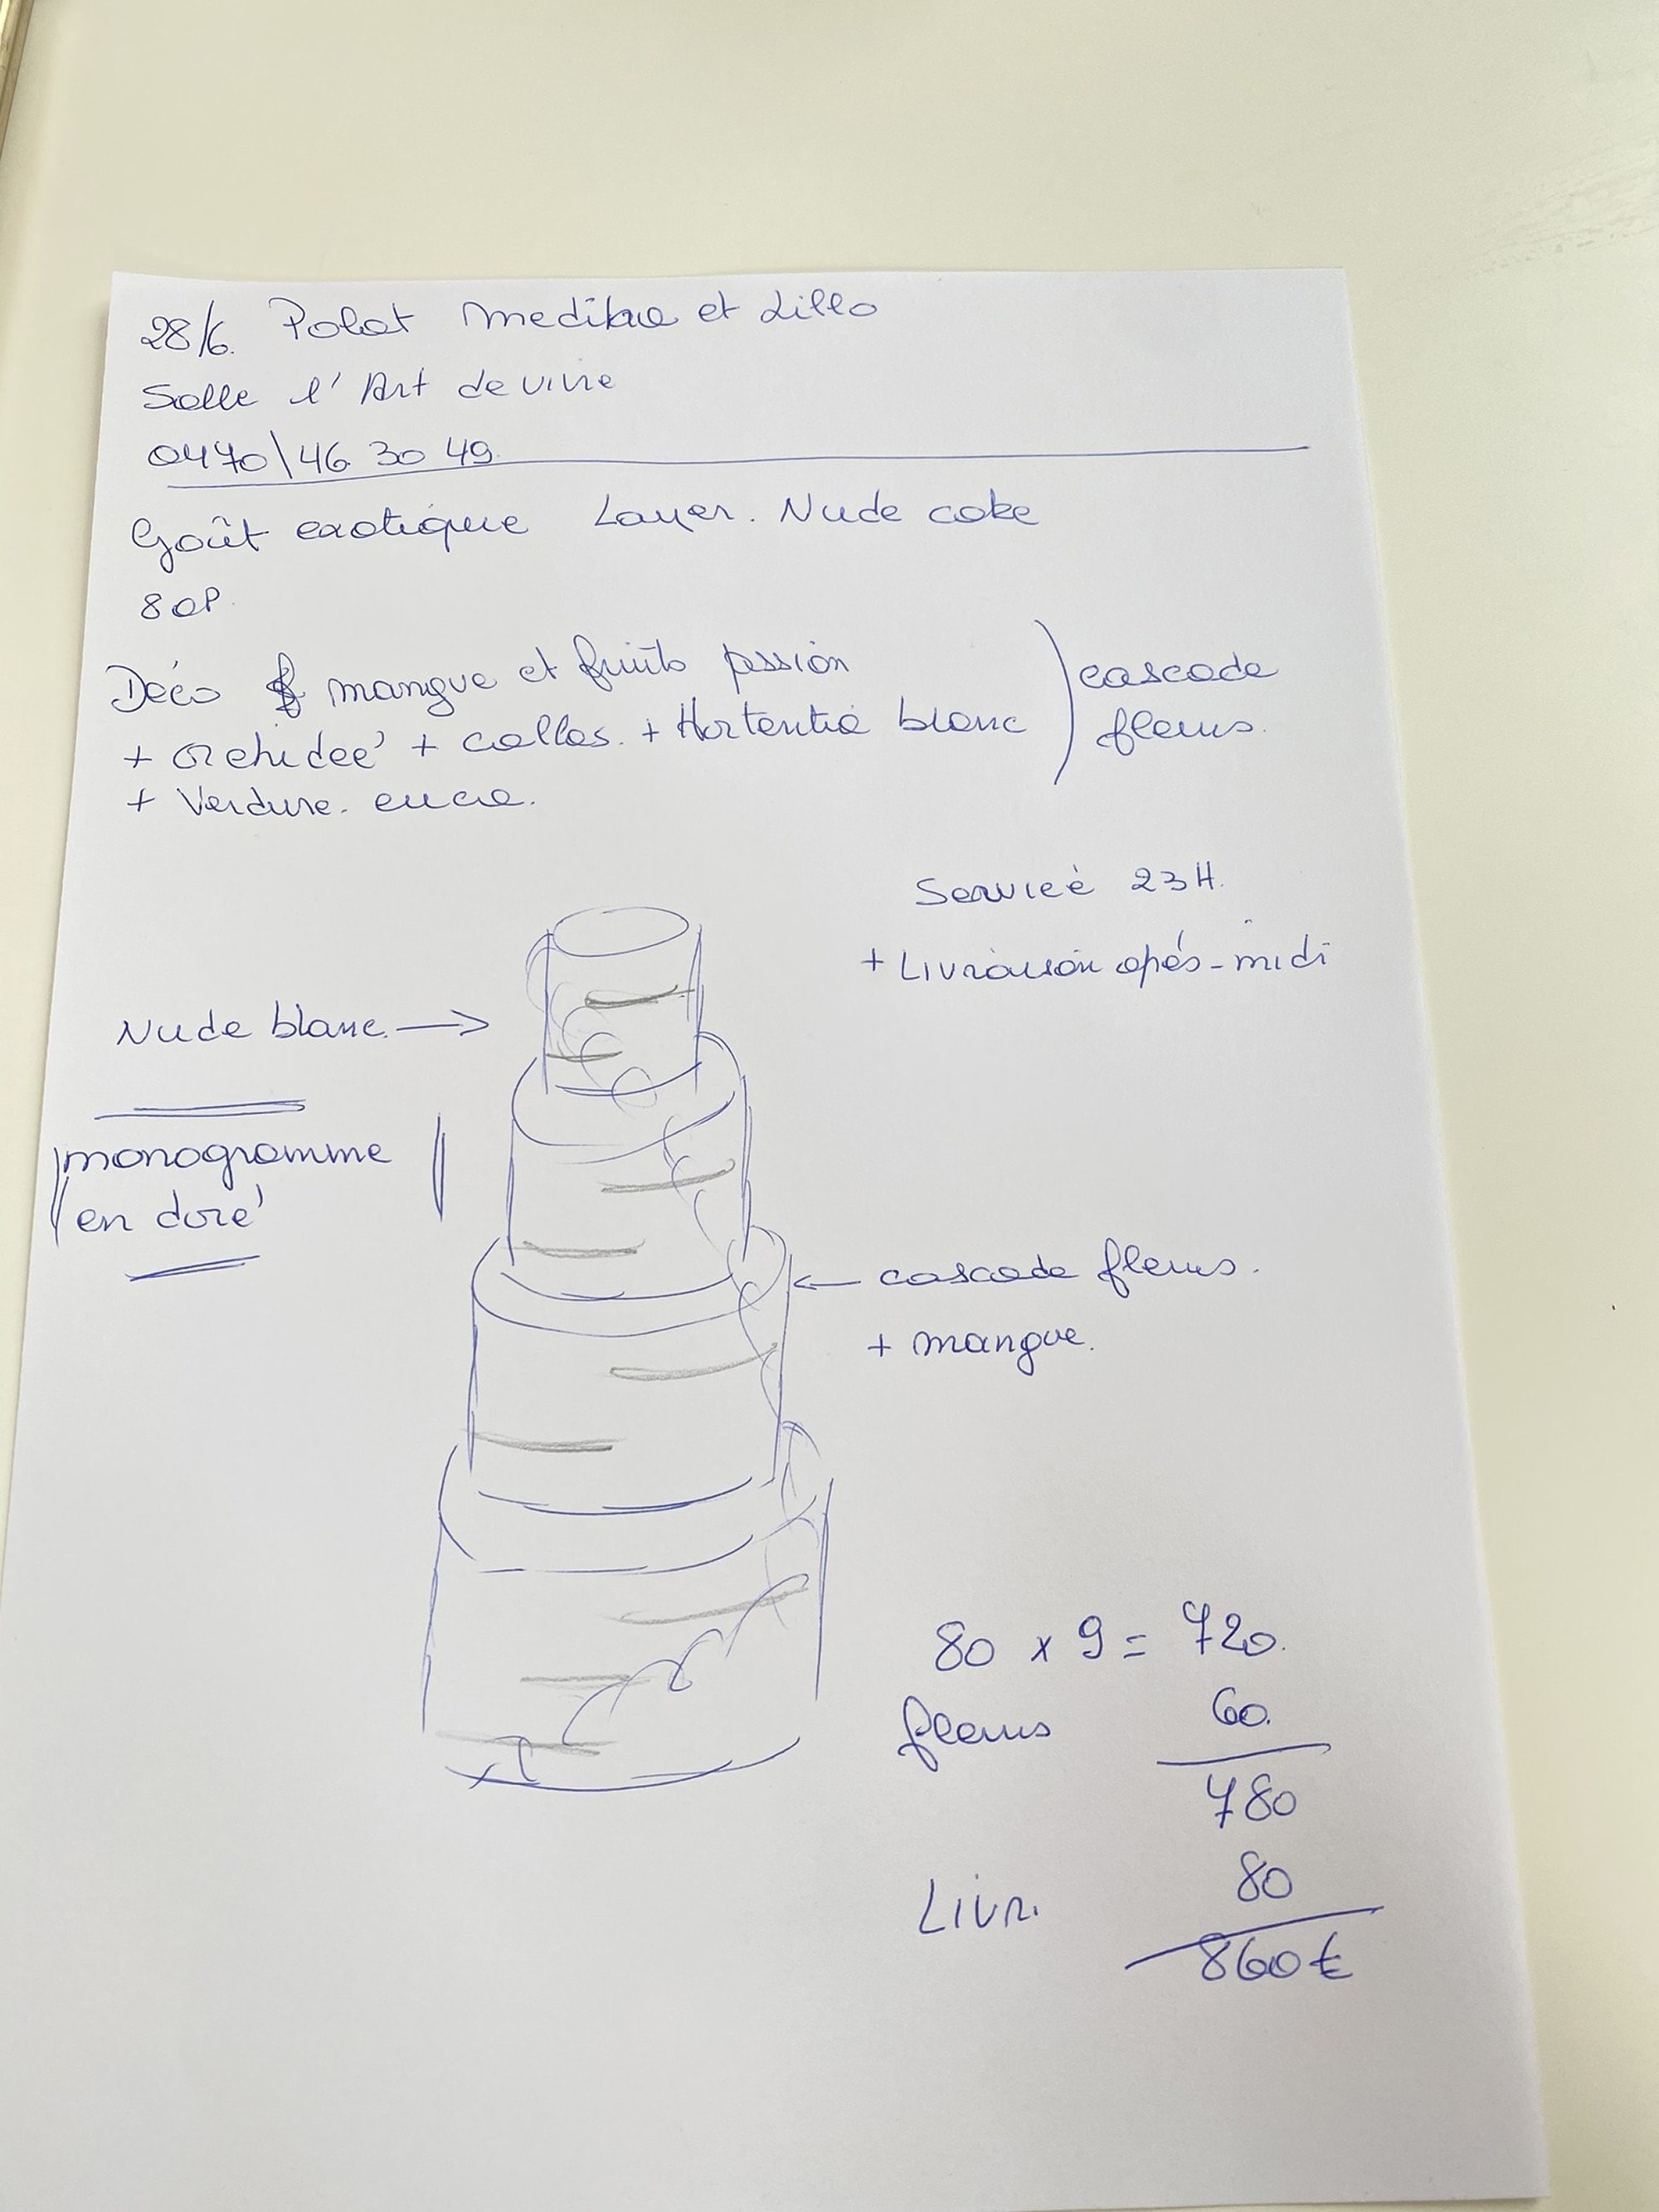 28/6. Polat Medika et Lillo
Salle l'Art de vivre
0470\46 30 49
Goût exotique Layer. Nude cake
80P.
Déco mangue et fruits passion
+ orchideé + callas. + Hortentia blanc
+ Verdure. euca.
cascade
fleurs.
Service 23H.
+ Livraison aprés-midi
Nude blanc.
monogramme
en doré
cascade fleurs.
+ mangue.
80 x 9 = 720.
fleurs 60.
780
Livr. 80
860€